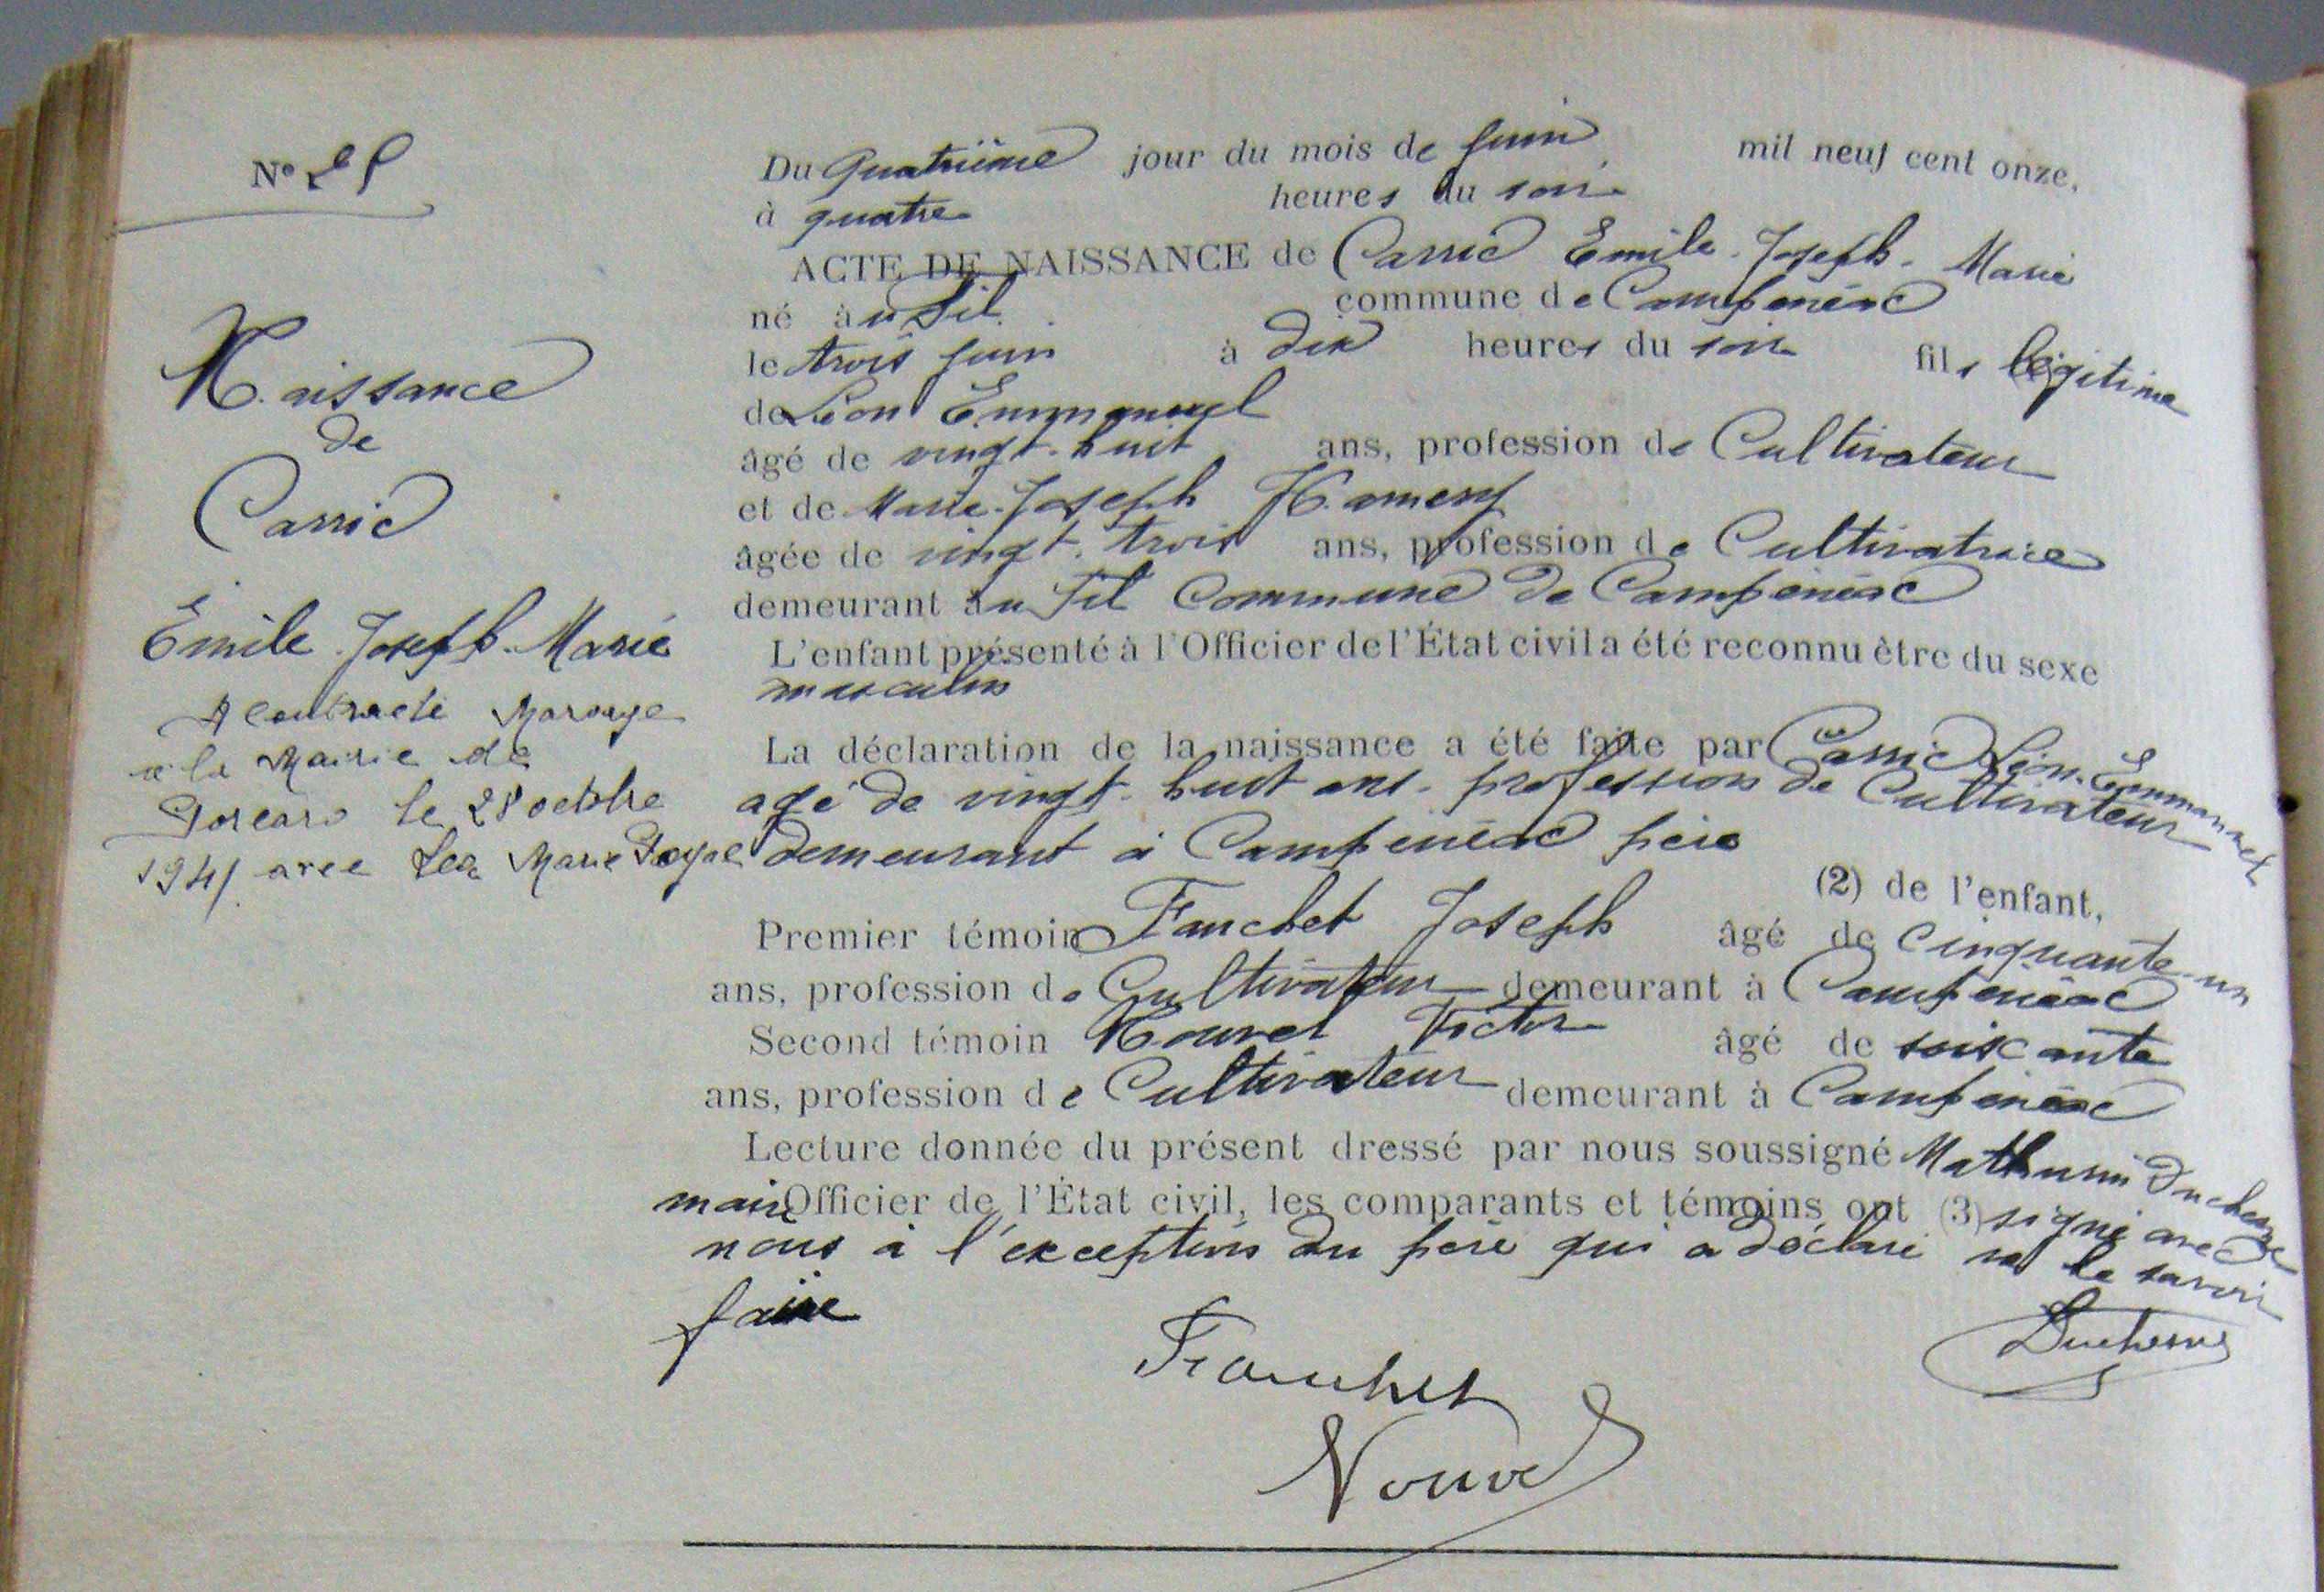 N°
Naissance
de
Carric
Emile Joseph Marie
A Contracté Mariage
à la Mairie de
le 28 octobre
1941 avec Léa Marie
Du Quatrième jour du mois de Juin mil neuf cent onze,
à quatre heures du soir
ACTE DE NAISSANCE de Carric Emile Joseph Marie
né au commune de Campénéac
le trois juin à dix heures du soir fils légitime
de Léon Emmanuel
âgé de vingt-huit ans, profession de Cultivateur
et de Marie-Joseph Hamery
âgée de vingt-trois ans, profession de Cultivatrice
demeurant au Commune de Campénéac
L'enfant présenté à l'Officier de l'État civil a été reconnu être du sexe
masculin
La déclaration de la naissance a été faite par Carric Léon Emmanuel
agé de vingt-huit ans profession de Cultivateur
demeurant à Campénéac père
(2) de l'enfant,
Premier témoin Fauchet Joseph âgé de cinquante-un
ans, profession de Cultivateur demeurant à Campénéac
Second témoin Nouvel Victor âgé de soixante
ans, profession de Cultivateur demeurant à Campénéac
Lecture donnée du présent dressé par nous soussigné Mathurin Duchesne
maire Officier de l'État civil, les comparants et témoins ont (3) signé avec
nous à l'exception du père qui a déclaré ne le savoir
faire
Duchesne
Fauchet
Nouvel